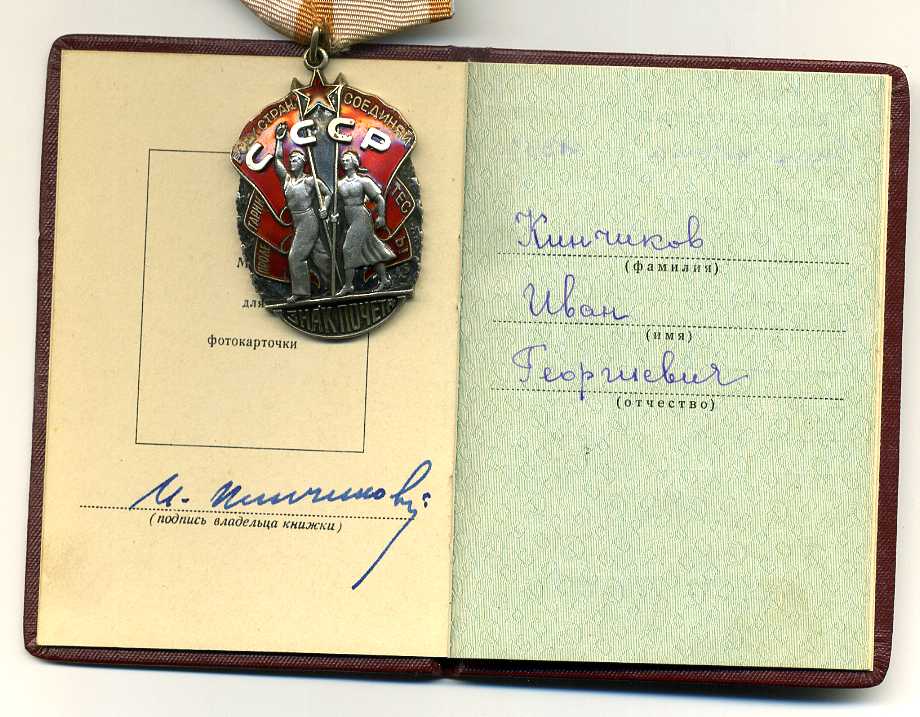 ВСЕХ СТРАН СОЕДИНЯЙ
ПРОЛЕ ТАРИИ ТЕС Ь!
СССР
ЗНАК ПОЧЕТА
М
для
фотокарточки
И. Кинчиков
(подпись владельца книжки)
Кинчиков
(фамилия)
Иван
(имя)
Георгиевич
(отчество)